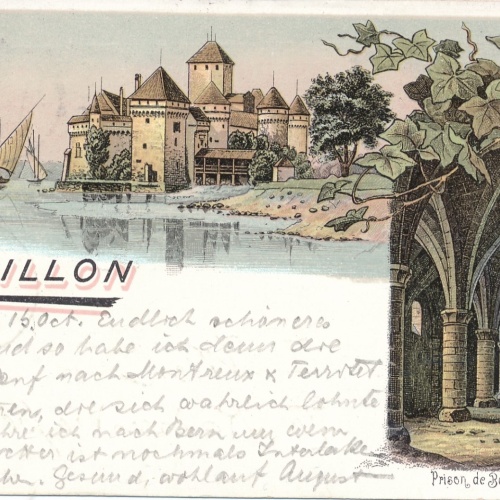 ILLON
15 Oct. Endlich schöneres
und so habe ich denn die
nach Montreux & Territet
die sich wahrlich lohnte
ich nach Bern um wenn
ist nochmals Interlake
Gesund, wohlauf August
Prison de Bo